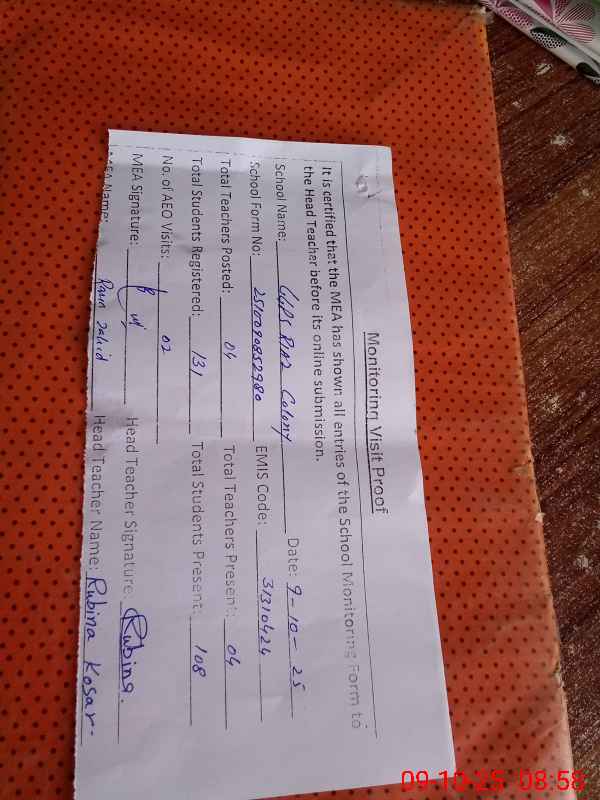 Monitoring Visit Proof
It is certified that the MEA has shown all entries of the School Monitoring Form to
the Head Teacher before its online submission.
School Name: GPS Riaz Colony Date: 9-10-25
School Form No: 2510090852980 EMIS Code: 31310424
Total Teachers Posted: 04 Total Teachers Present: 04
Total Students Registered: 131 Total Students Present: 108
No. of AEO Visits: 02
MEA Signature: Head Teacher Signature: Rubina.
MEA Name: Rana Zahid Head Teacher Name: Rubina Kosar.
09.10.25 08:58